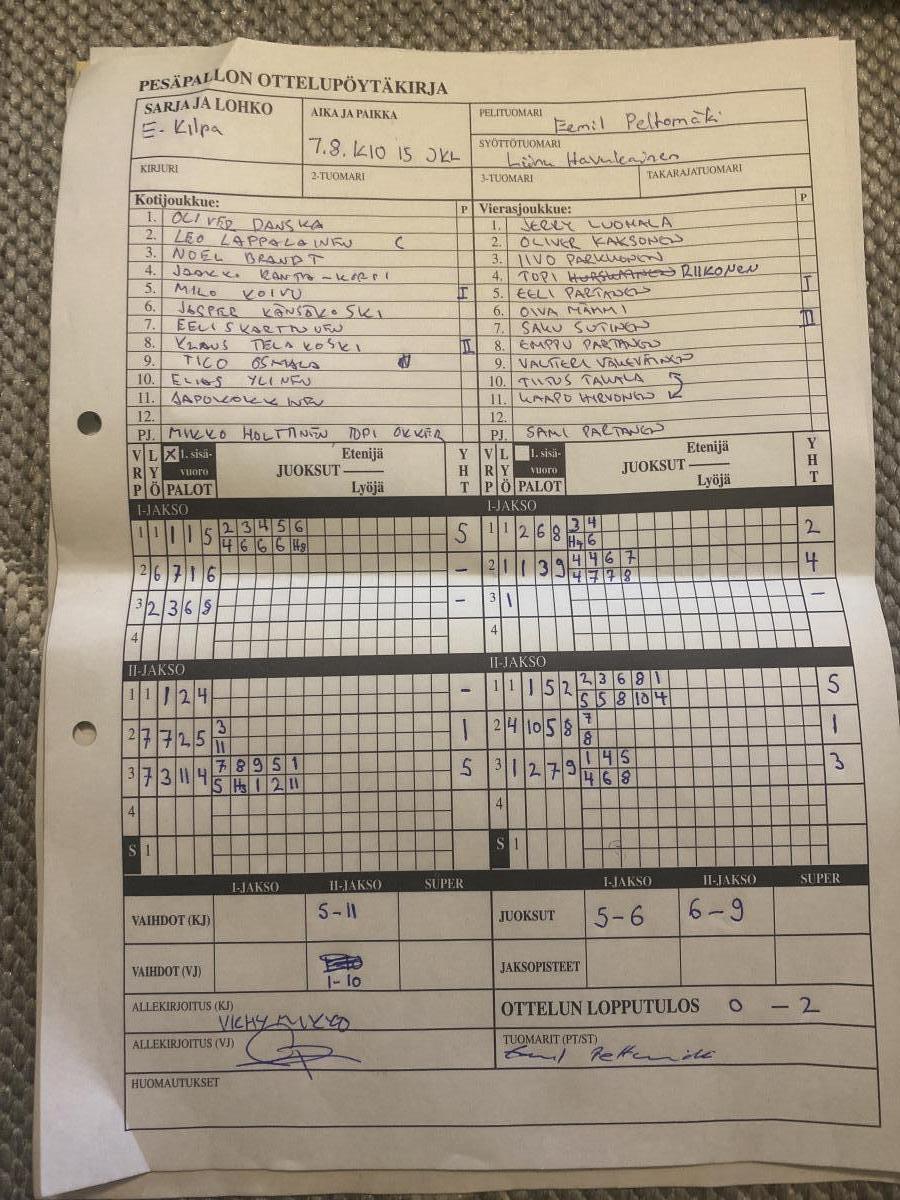 PESÄPALLON OTTELUPÖYTÄKIRJA
SARJA JA LOHKO
E-Kilpa
AIKA JA PAIKKA
7.8. K10 15 JKL
PELITUOMARI
Eemil Peltomäki
SYÖTTÖTUOMARI
KIRJURI
2-TUOMARI
3-TUOMARI
TAKARAJATUOMARI
Kotijoukkue: P
1. OLIVER DANSKA
2. LEO LAPPALAINEN C
3. NOEL BRANDT
4. JAAKKO RANTA-KORPI
5. MILO KOIVU I
6. JASPER KÄNSÄKOSKI
7. EELI SKARTINUEN
8. KLAUS TELAKOSKI II
9. TICO OSMALA
10. ELIAS YLINEN
11. AAPO KOKKINEN
12.
PJ. MIKKO HOLTTINEN TOPI OKKER
Vierasjoukkue: P
1. JERRY LUOMALA
2. OLIVER KAKSONEN
3. IIVO PARKKONEN
4. TOPI RIIKONEN
5. EELI PARTANEN I
6. OIVA MÄMMI
7. SAKU SUTINEN II
8. EMPPU PARTANEN
9. VALTTERI VÄKEVÄINEN
10. TIITUS TAKALA
11. KAAPO HIRVONEN
12.
PJ. SAMI PARTANEN
VRP LYÖ X 1. sisävuoro PALOT JUOKSUT Etenijä Lyöjä YHT
VRP LYÖ 1. sisävuoro PALOT JUOKSUT Etenijä Lyöjä YHT
I-JAKSO
1 1 1 1 5 2 3 4 5 6 5
4 6 6 6 H8
2 6 7 1 6 –
3 2 3 6 8 –
4
I-JAKSO
1 1 2 6 8 3 4 2
H4 6
2 1 1 3 9 4 4 6 7 4
4 7 7 8
3 1 –
4
II-JAKSO
1 1 1 2 4 –
2 7 7 2 5 3 1
11
3 7 3 11 4 7 8 9 5 1 5
5 H3 1 2 11
4
S 1
II-JAKSO
1 1 1 5 2 2 3 6 8 1 5
5 5 8 10 4
2 4 10 5 8 7 1
8
3 1 2 7 9 1 4 5 3
4 6 8
4
S 1
I-JAKSO II-JAKSO SUPER
VAIHDOT (KJ) 5-11
VAIHDOT (VJ) 1-10
I-JAKSO II-JAKSO SUPER
JUOKSUT 5-6 6-9
JAKSOPISTEET
ALLEKIRJOITUS (KJ)
VICHY MIKKO
ALLEKIRJOITUS (VJ)
OTTELUN LOPPUTULOS 0 – 2
TUOMARIT (PT/ST)
Eemil Peltomäki
HUOMAUTUKSET